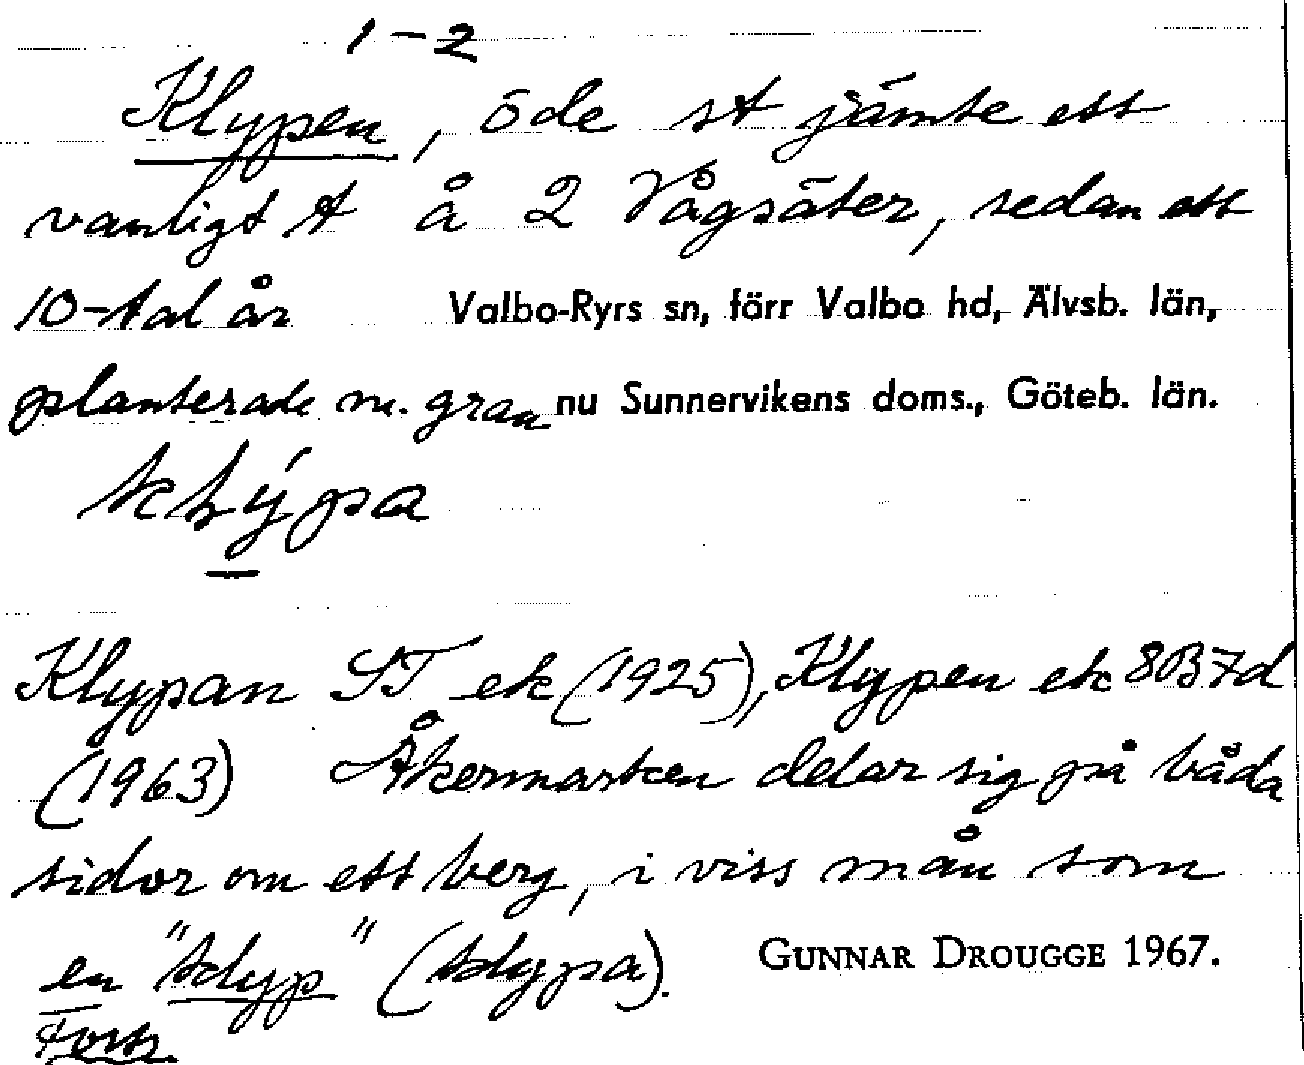 1-2
Klypen, öde st jämte ett
vanligt t å 2 Vågsäter, sedan ett
10-tal år Valbo-Ryrs sn, förr Valbo hd, Älvsb. län,
planterade m. gran nu Sunnervikens doms., Göteb. län.
Klypan ST ek (1925), Klypen ek 8B7d
(1963) Åkermarken delar sig på båda
sidor om ett berg, i viss mån som
en "klyp" (klypa). GUNNAR DROUGGE 1967.
Forts.